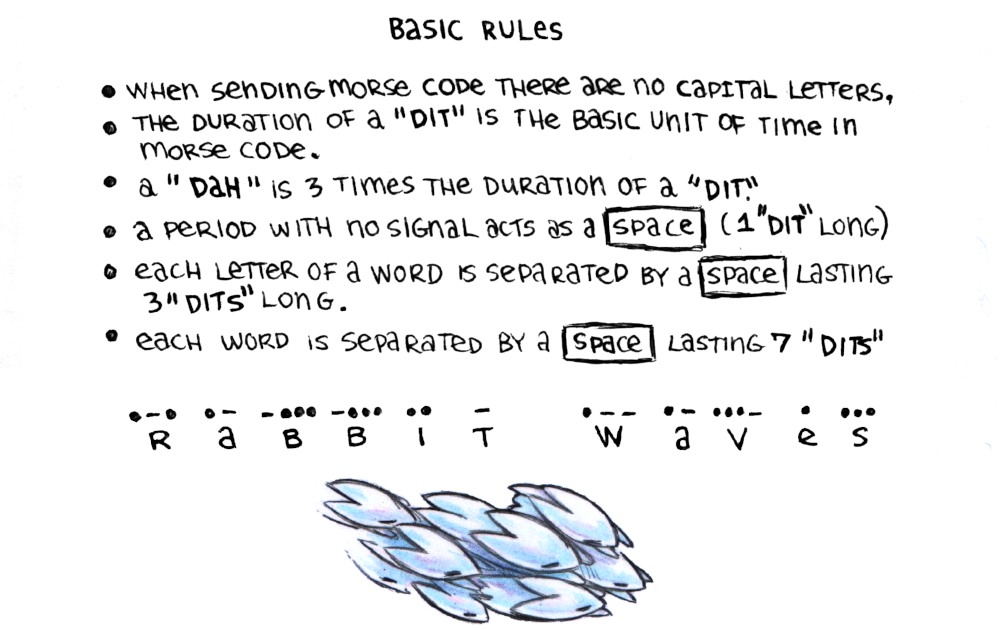 BASIC RULES
• WHEN SENDING MORSE CODE THERE ARE NO CAPITAL LETTERS,
• THE DURATION OF A "DIT" IS THE BASIC UNIT OF TIME IN
MORSE CODE.
• A "DAH" IS 3 TIMES THE DURATION OF A "DIT."
• A PERIOD WITH NO SIGNAL ACTS AS A SPACE (1 "DIT" LONG)
• EACH LETTER OF A WORD IS SEPARATED BY A SPACE LASTING
3 "DITS" LONG.
• EACH WORD IS SEPARATED BY A SPACE LASTING 7 "DITS"
•–• •– –••• –••• •• – •–– •– •••– • •••
R A B B I T W A V E S